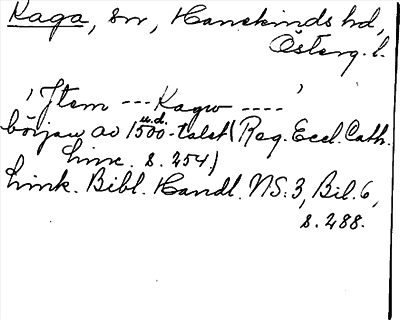 Kaga, sn, Hanekinds hd,
Österg. l.
'Jtem --- Kagw ----'
u.d.
början av 1500-talet (Reg. Eccl. Cath.
Linc. s. 254)
Link. Bibl. Handl. NS. 3, Bil. 6,
s. 288.